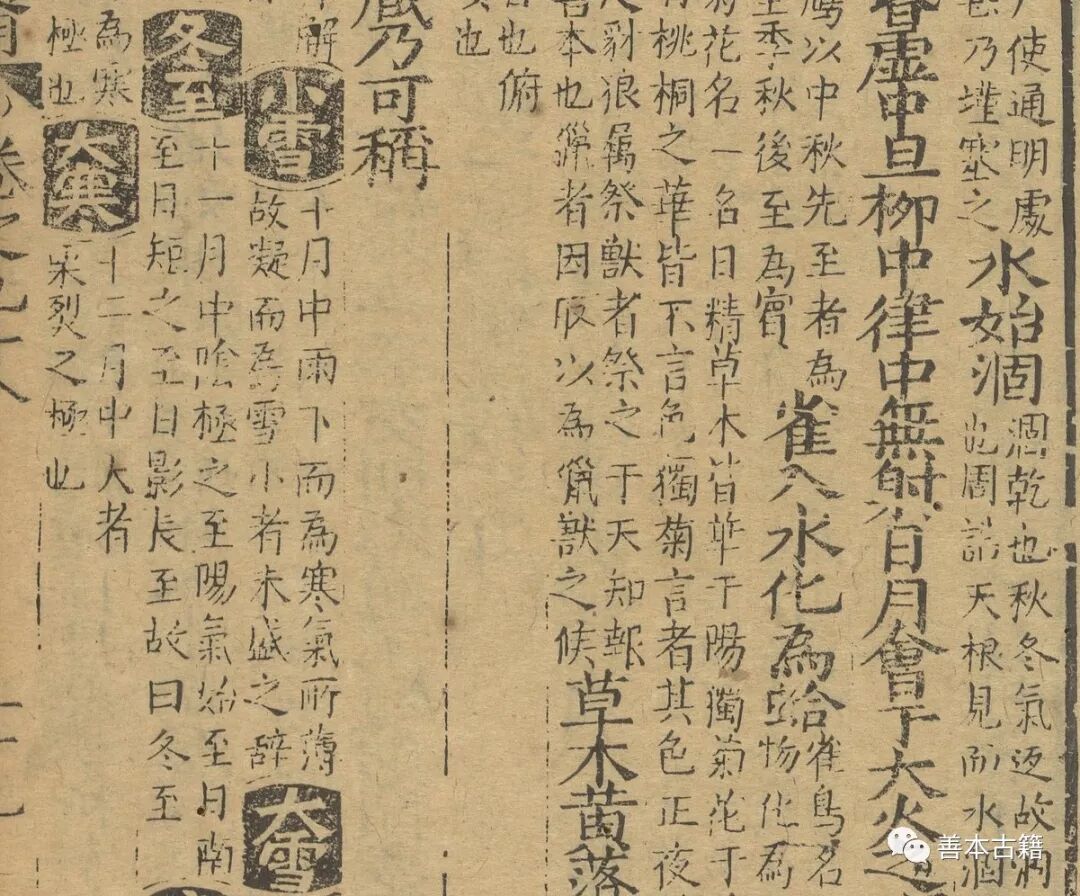 戶使通明處
巷乃墐塞之
水始涸
涸乾也秋冬氣返故涸
也周語天根見而水涸
昏虛中旦柳中律中無射日月會于大火之
鴈以中秋先至者為
至季秋後至為賓
雀入水化為蛤
雀鳥名
物化為
菊花名一名日精草木皆華于陽獨菊花于
有桃桐之華皆不言色獨菊言者其色正夜
豺狼屬祭獸者祭之于天知報
本也獵者因辰以為獵獸之候
草木黃落
也俯
也
乃可稱
解
小雪
十月中雨下而為寒氣所薄
故凝而為雪小者未盛之辭
大雪
冬至
十一月中陰極之至陽氣始至日南
至日短之至日影長至故曰冬至
為寒
極也
大寒
十二月中大者
栗烈之極也
卷之
善本古籍